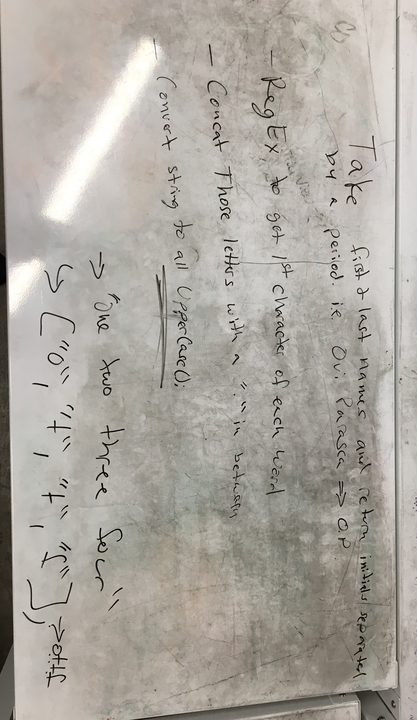 Take first & last names and return initials separated
by a period. i.e. Ovi Parasca => O.P
- RegEx to get 1st character of each word
- Concat Those letters with a "." in between
- Convert string to all UpperCase();
→ "one two three four"
↳ ["o", "t", "t", "f"]; → o.t.t.f